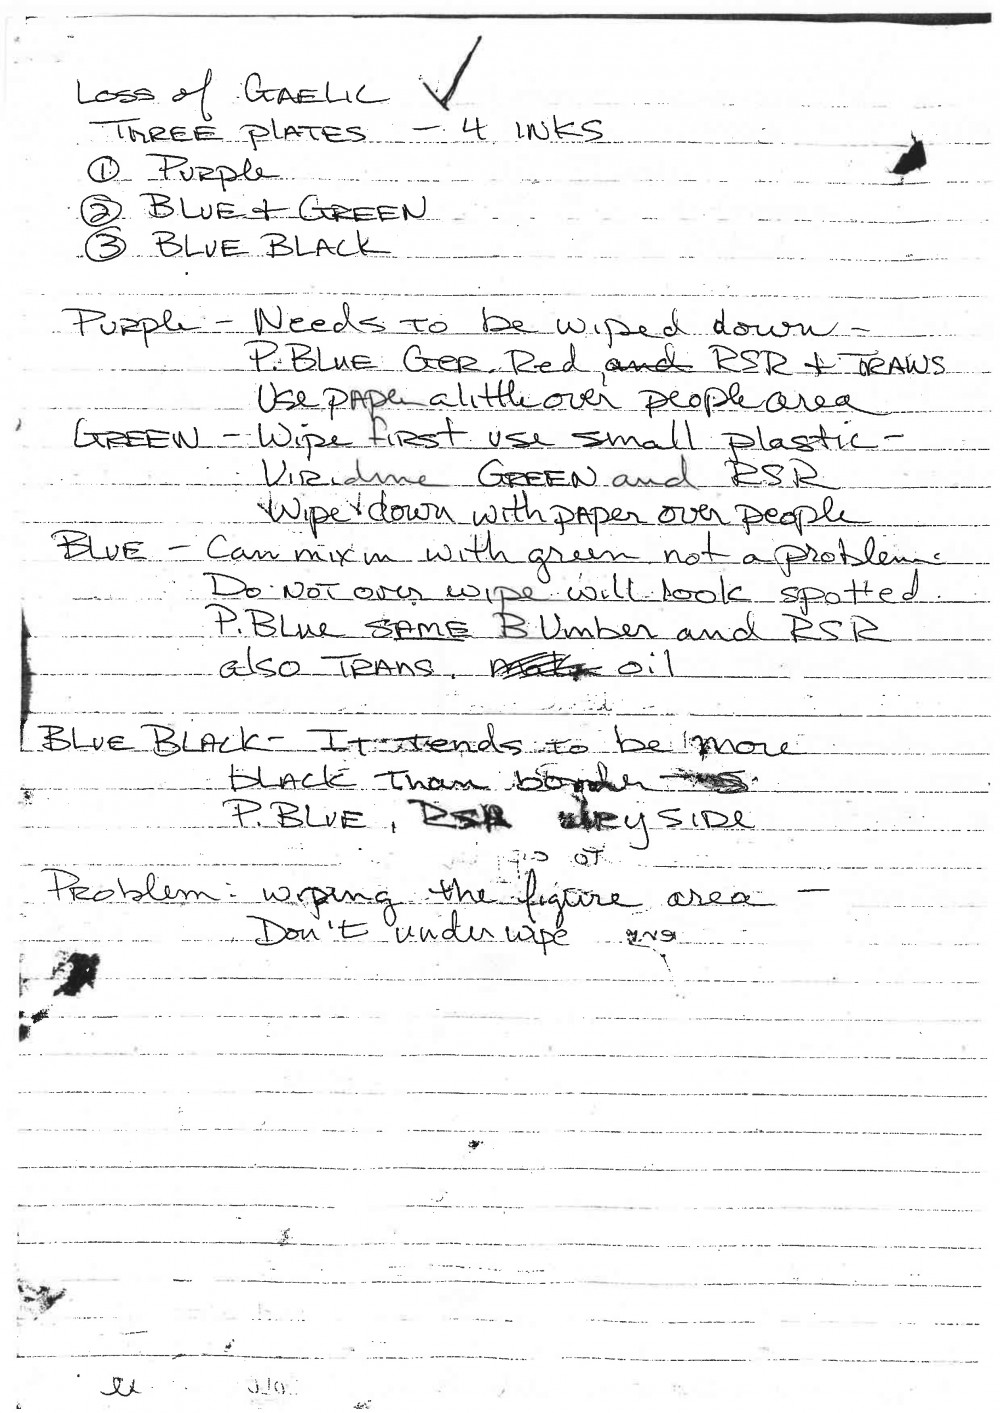 Loss of GAELIC ✓
THREE PLATES - 4 INKS
① Purple
② BLUE + GREEN
③ BLUE BLACK
Purple - Needs to be wiped down -
P. BLUE GER. Red, and RSR + TRANS
Use paper a little over people area
GREEN - Wipe first use small plastic -
Viridine GREEN and RSR
Wipe down with paper over people
BLUE - Can mix in with green not a problem.
Do NOT over wipe will look spotted.
P. Blue SAME B Umber and RSR
also TRANS. oil
BLUE BLACK - It tends to be more
black than border
P. BLUE, RSR dry SIDE
Problem: wiping the figure area -
Don't under wipe